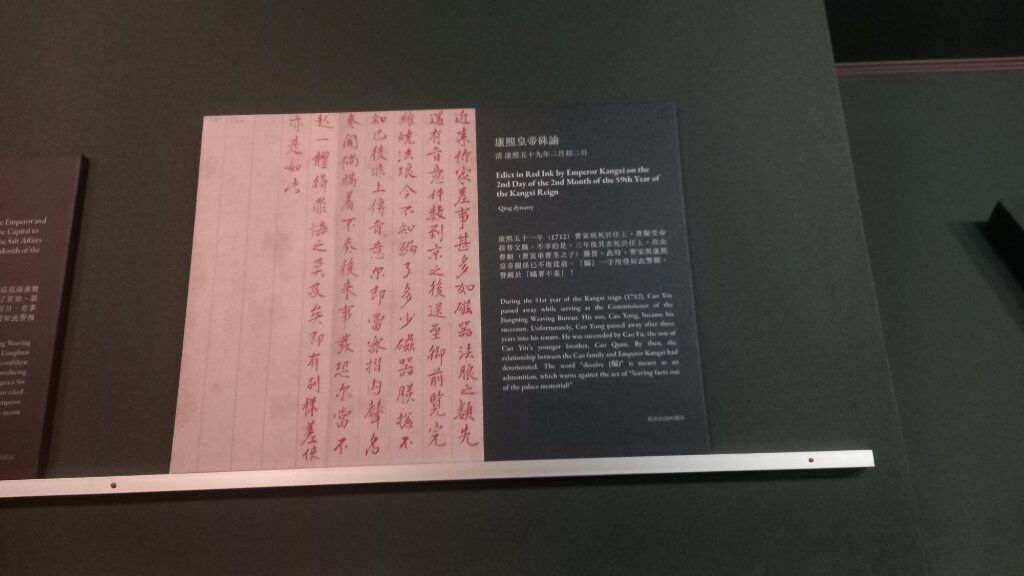 e Emperor and
he Capital to
he Salt Affairs
Month of the
Weaving
Lianghuai
confidant
roducing
gence for
ao asked
mperor.
s meant
近来你家差事甚多如磁器法瑯之類先
還有旨意件數到京之後送至御前覽完
纔燒法瑯今不知騙了多少磁器朕總不
知已後非上傳旨意尔即當密摺內聲名
奏聞倘瞞着不奏後来事發恐尔當不
起一體得罪悔之莫及矣即有別樣差使
亦是如
康熙皇帝硃諭
清 康熙五十九年二月初二日
Edict in Red Ink by Emperor Kangxi on the
2nd Day of the 2nd Month of the 59th Year of
the Kangxi Reign
Qing dynasty
康熙五十一年（1712）曹寅病死於任上，曹顒受命
接替父職。不幸的是，三年後其亦死於任上，改由
曹頫（曹寅弟曹荃之子）襲替。此時，曹家與康熙
皇帝關係已不復從前。「騙」一字用得如此警醒，
警醒於「瞞著不奏」！
During the 51st year of the Kangxi reign (1712), Cao Yin
passed away while serving as the Commissioner of the
Jiangning Weaving Bureau. His son, Cao Yong, became his
successor. Unfortunately, Cao Yong passed away after three
years into his tenure. He was succeeded by Cao Fu, the son of
Cao Yin's younger brother, Cao Quan. By then, the
relationship between the Cao family and Emperor Kangxi had
deteriorated. The word "deceive (騙)" is meant as an
admonition, which warns against the act of "leaving facts out
of the palace memorial!"